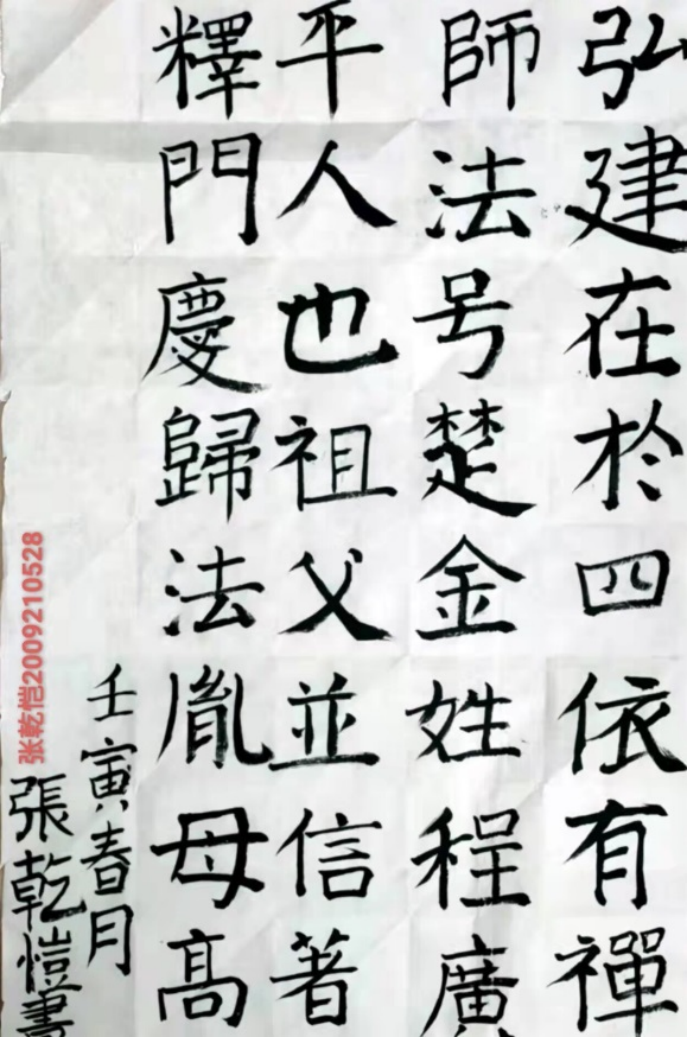 弘建在於四依有禪
師法号楚金姓程廣
平人也祖父並信著
釋門慶歸法胤母高
壬寅春月
張乾愷書
张乾恺2009210528